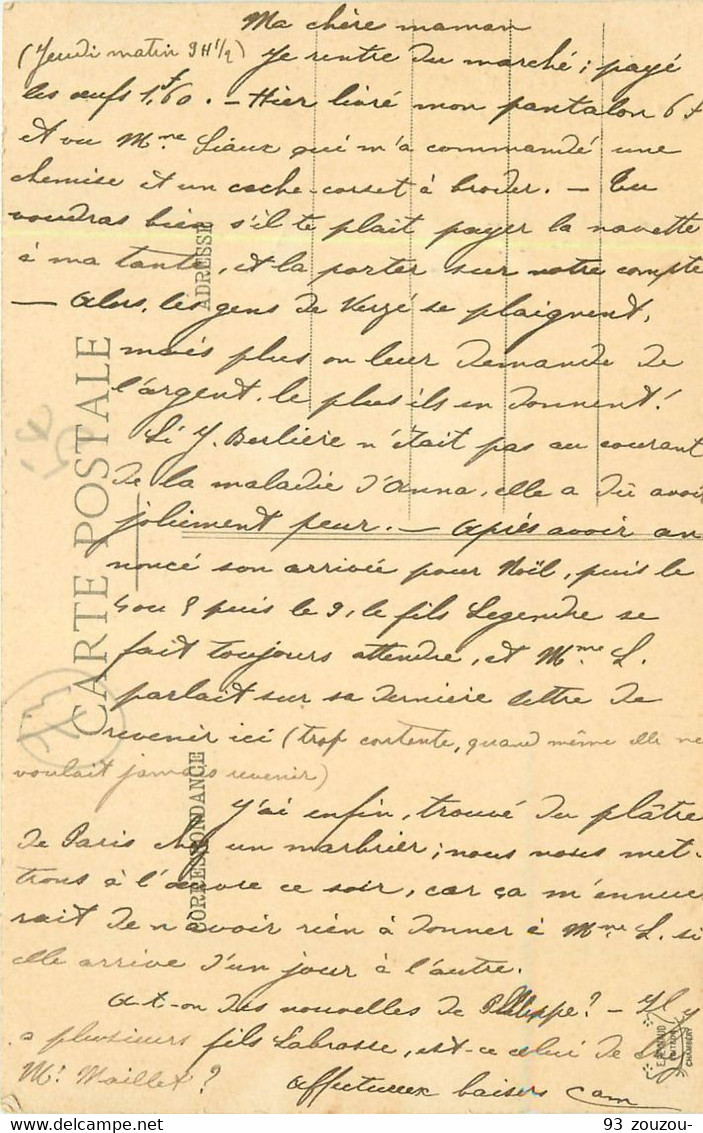 Ma chère maman
(Jeudi matin 9H1/2) Je rentre du marché; payé
les œufs 1f,60. — Hier livré mon pantalon 6f
et vu Mme Siaux qui m'a commandé une
chemise et un cache-corset à broder. — Tu
voudras bien s'il te plait payer la navette
à ma tante, et la porter sur notre compte
— Alors, les gens de Verzé se plaignent,
mais plus on leur demande de
l'argent, le plus ils en donnent!
Si J. Berlière n'était pas au courant
de la maladie d'Anna, elle a dû avoir
joliment peur. — Après avoir an
noncé son arrivée pour Noël, puis le
ou 8 puis le 9, le fils Legendre se
fait toujours attendre, et Mme L.
parlait sur sa dernière lettre de
revenir ici (trop contente, quand même elle ne
voulait jamais revenir)
J'ai enfin, trouvé du plâtre
de Paris chez un marbrier; nous nous met-
trons à l'œuvre ce soir, car ça m'ennuie
rait de n'avoir rien à donner à Mme L. si
elle arrive d'un jour à l'autre.
a-t-on des nouvelles de Philippe? — Il y
a plusieurs fils Labrosse, est-ce celui de
Mr Maillet? Affectueux baisers Cam
CARTE POSTALE
CORRESPONDANCE
ADRESSE
E. REYNAUD
EDITEUR
CHAMBERY
93 zouzou-